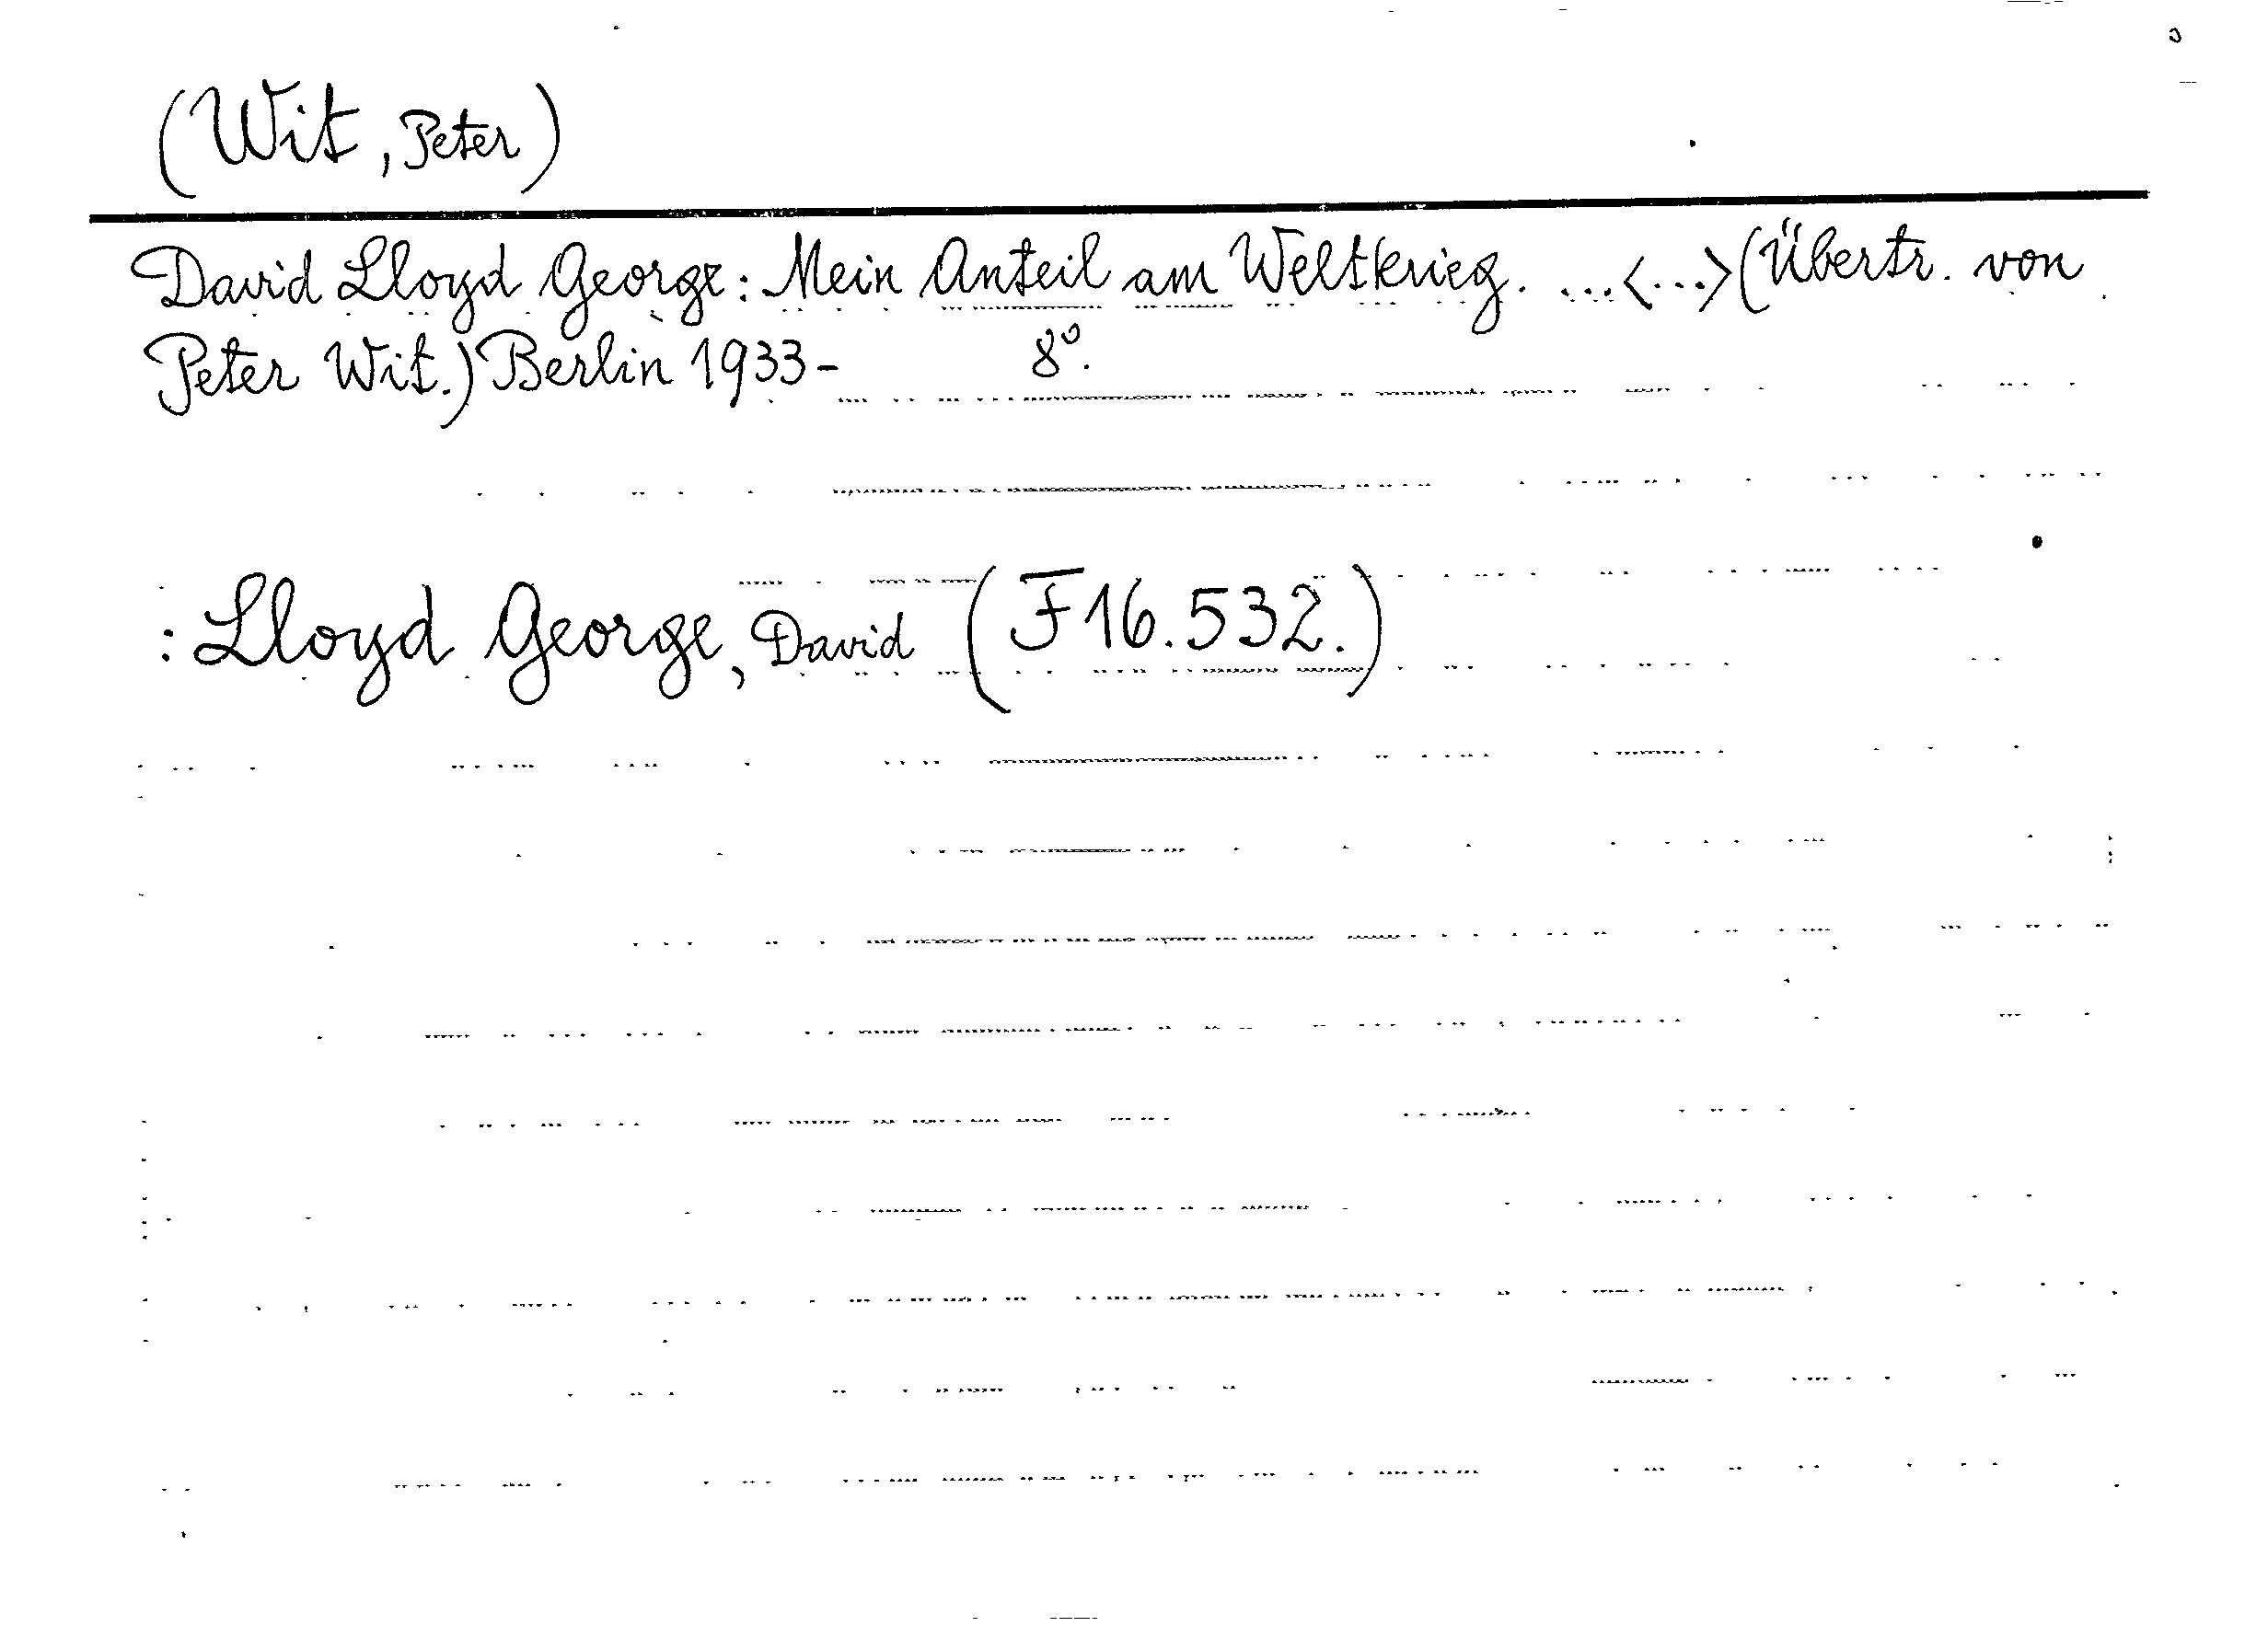 (Wit, Peter)
David Lloyd George: Mein Anteil am Weltkrieg. ...<...>(Übertr. von
Peter Wit.) Berlin 1933- 8°.
: Lloyd George, David (F16.532.)